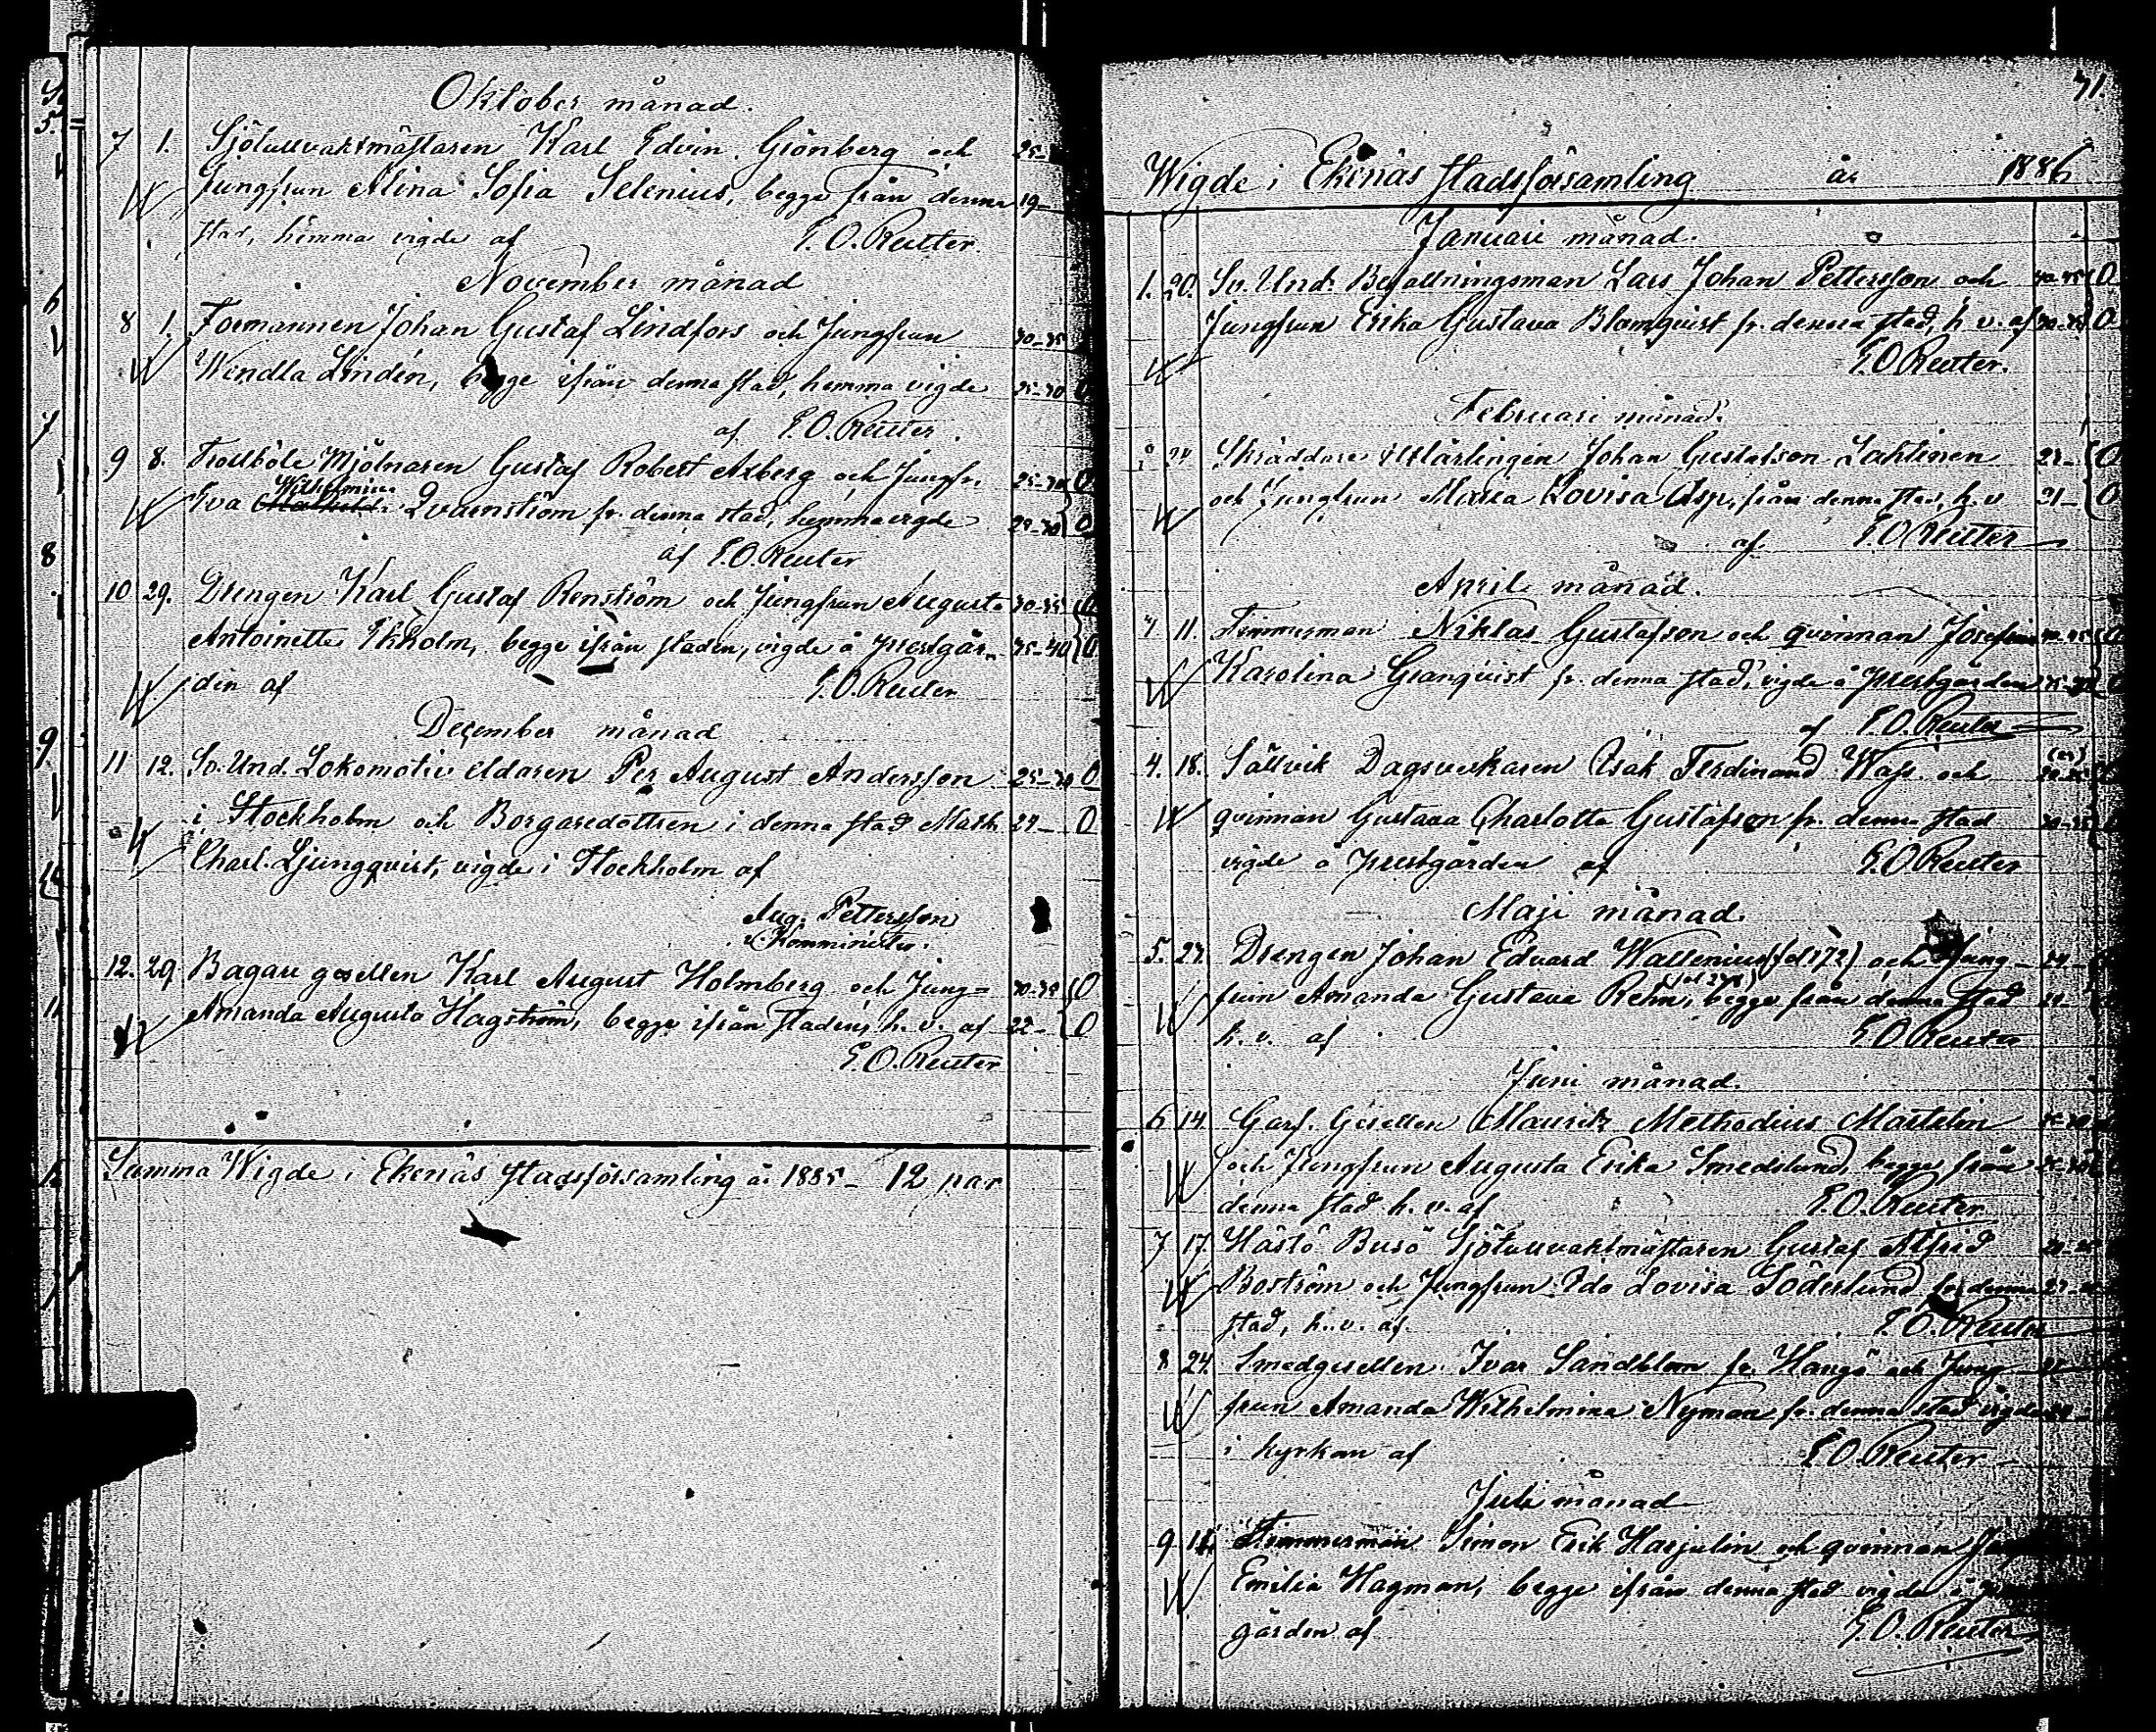 Oktober månad.
7 1. Sjötullvaktmästaren Karl Edvin Grönberg och 25-
Jungfrun Alina Sofia Selenius, begge från denna 19-
stad, hemma vigde af E. O. Reuter.
November månad
8 1. Formannen Johan Gustaf Lindfors och Jungfrun 30-35
Wendla Lindén, begge ifrån denna stad, hemma vigde 25-30 0
af E. O. Reuter.
9 8. Trollböle Mjölnaren Gustaf Robert Axberg och Jungfr. 25-30 0
Wilhelmina
Eva Mathilda Qvarnström fr. denna stad, hemma vigde 0
af E. O. Reuter
10 29. Drengen Karl Gustaf Renström och Jungfrun Augusta 30-35 0
Antoinette Ekholm, begge ifrån staden, vigde å prestgår- 35-40 0
den af E. O. Reuter
December månad
11 12. Sv. Und. Lokomotiv eldaren Per August Andersson 25-30 0
i Stockholm och Borgaredottren i denna stad Math. 24- 0
Charl. Ljungqvist, vigde i Stockholm af
Aug. Pettersson
v. Komminister.
12. 29 Bagare gesellen Karl August Holmberg och Jung= 30-35 0
Amanda Augusta Hagström, begge ifrån staden, h. v. af 22- 0
E. O. Reuter
Summa Wigde i Ekenäs stadsförsamling år 1885 - 12 par
71.
Wigde i Ekenäs stadsförsamling år 1886
Januari månad.
1. 20. Sv. Und. Befallningsman Lars Johan Pettersson och 40-45 0
Jungfrun Erika Gustava Blomqvist fr. denna stad, h. v. af 0
E. O. Reuter.
Februari månad.
24 Skräddare Johan Gustafson Lahtinen 0
och Jungfrun Maria Lovisa Asp, från denna stad, h. v. 21- 0
af E. O. Reuter
April månad.
11. Timmerman Niklas Gustafson och qvinnan Josefina
Karolina Granqvist fr. denna stad, vigde å prestgården
af E. O. Reuter
4. 18. Sällvik Dagsverkaren Isak Ferdinand Wass och
qvinnan Gustava Charlotta Gustafson fr. denna stad
vigde å prestgården af E. O. Reuter
Maji månad.
5. 27. Drengen Johan Edvard Wallenius (fol 172) och Jung-
frun Amanda Gustava Rehn, begge från denna stad
h. v. af E. O. Reuter
Juni månad.
6 14. Garf. Gesellen Mauritz Methodius Martelin
och Jungfrun Augusta Erika Smedslund, begge från
denna stad h. v. af E. O. Reuter
7 17. Hästö Busö Sjötullvaktmästaren Gustaf Alfrid
Boström och Jungfrun Ida Lovisa Söderlund fr. denna
stad, h. v. af E. O. Reuter
8 24. Smedgesellen Ivar Sandblom fr. Hangö och Jung-
frun Amanda Wilhelmina Nyman fr. denna stad vigde
i kyrkan af E. O. Reuter
Juli månad
9 Timmerman Simon Erik Harjulin och qvinnan
Emilia Hagman, begge ifrån denna stad vigde å
gården af E. O. Reuter